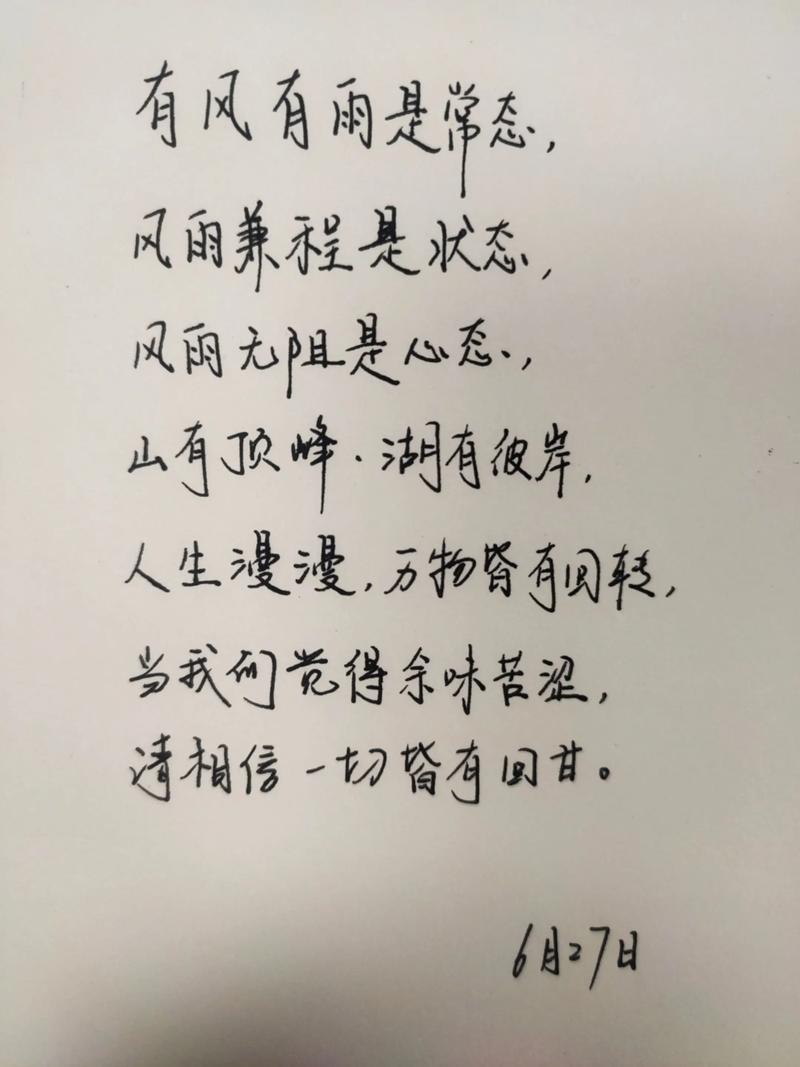 有风有雨是常态，
风雨兼程是状态，
风雨无阻是心态，
山有顶峰．湖有彼岸，
人生漫漫，万物皆有回转，
当我们觉得余味苦涩，
请相信一切皆有回甘。
6月27日